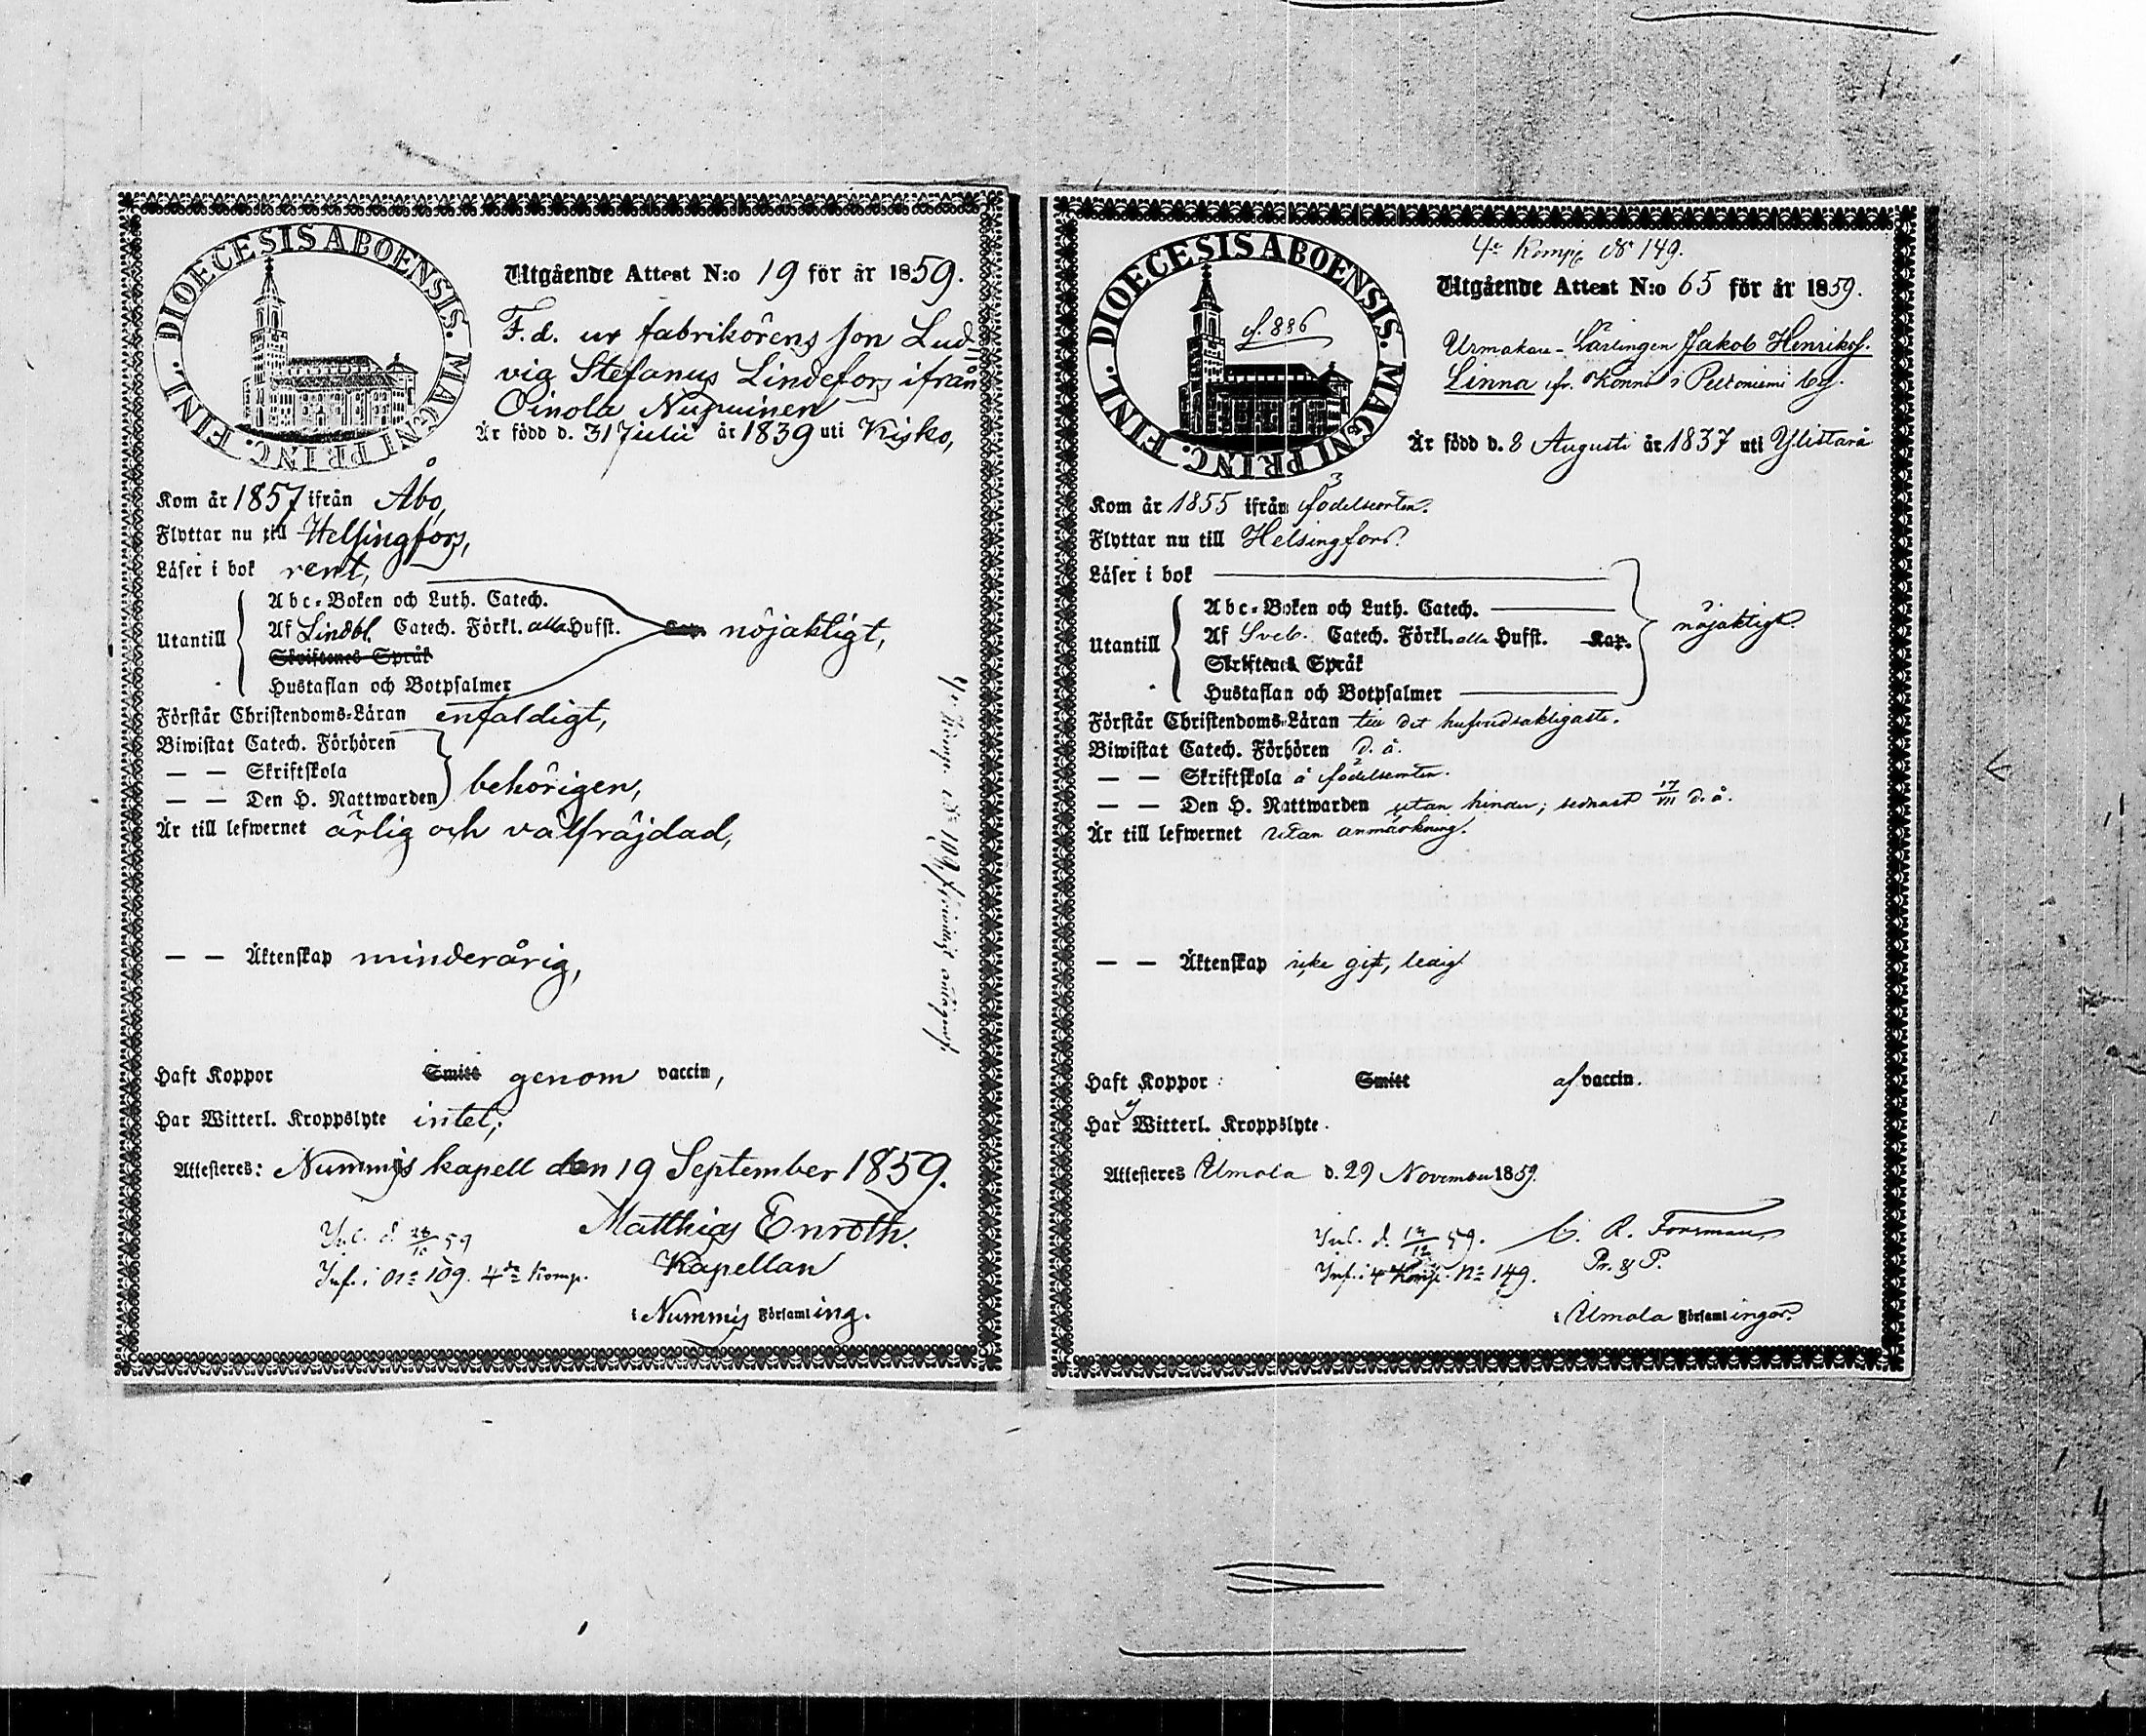 DIOECESIS ABOENSIS. MAGNI PRINC. FINL.
Utgående Attest N:o 19 för år 1859.
F.d. ur fabrikörens son Lud-
vig Stefanus Lindefors ifrån
Oinola Nupuinen
Är född d. 31 Julii år 1839 uti Kisko,
Kom år 1857 ifrån Åbo,
Flyttar nu till Helsingfors,
Läser i bok rent,
Utantill
Abc-Boken och Luth. Catech.
Af Lindbl. Catech. Förkl. alla Hufst. Kap. nöjaktigt,
Skriftenes Språk
Hustaflan och Botpsalmer
Förstår Christendoms-Läran enfaldigt,
Biwistat Catech. Förhören
— — Skriftskola
behörigen,
— — Den H. Nattwarden
Är till lefwernet ärlig och välfräjdad,
— — Äktenskap minderårig,
Haft Koppor Smitt genom vaccin,
Har Witterl. Kroppslyte intet;
Attesteres: Nummis kapell den 19 September 1859.
Matthias Enroth.
Kapellan
i Nummis Församling.
Inl. d. 26/10 59
Inf. i No 109. 4de Komp.
4e Komp. No 109
DIOECESIS ABOENSIS. MAGNI PRINC. FINL.
f. 886
4e Komp. No 149.
Utgående Attest N:o 65 för år 1859.
Urmakare-Lärlingen Jakob Henrikss.
Linna fr. Könni i Peltoniemi by.
Är född d. 8 Augusti år 1837 uti Ylistaro
Kom år 1855 ifrån födelseorten.
Flyttar nu till Helsingfors.
Läser i bok
Utantill
Abc-Boken och Luth. Catech.
Af Sveb. Catech. Förkl. alla Hufst. Kap. nöjaktigt.
Skriftenes Språk
Hustaflan och Botpsalmer
Förstår Christendoms-Läran till det hufvudsakligaste.
Biwistat Catech. Förhören d. å.
— — Skriftskola å födelseorten.
— — Den H. Nattwarden utan hinder; sednast 17/VII d. å.
Är till lefwernet utan anmärkning.
— — Äktenskap icke gift, ledig
Haft Koppor Smitt af vaccin.
Har ej Witterl. Kroppslyte.
Attesteres Ilmola d. 29 November 1859.
C. R. Forsman
Pr. & P.
i Ilmola Församlingar.
Inl. d. 14/12 59.
Inf. i 4 Komp. No 149.